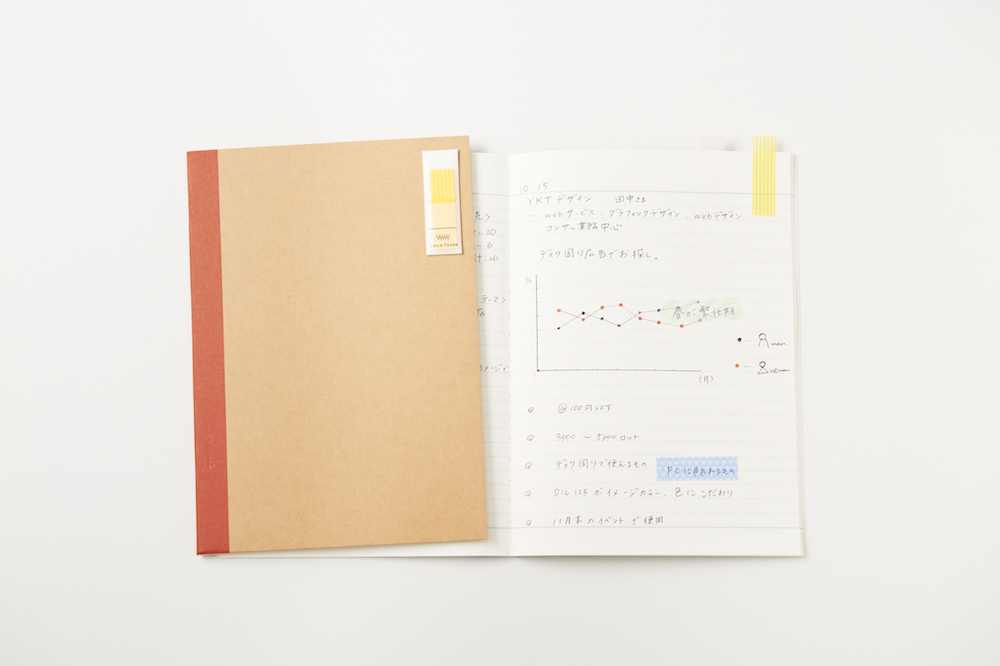 10 15
YKT デザイン 田中さま
— webサービス、グラフィックデザイン、webデザイン
コンサル業務中心
デスク周り広告でお探し。
春が繁忙期
man
woman
(月)
@100円以下
3000 〜 5000 ロット
デスク周りで使えるもの PCに貼れるもの
DIC 125 がイメージカラー、色にこだわり
11月末のイベントで使用
〜20
〜 6